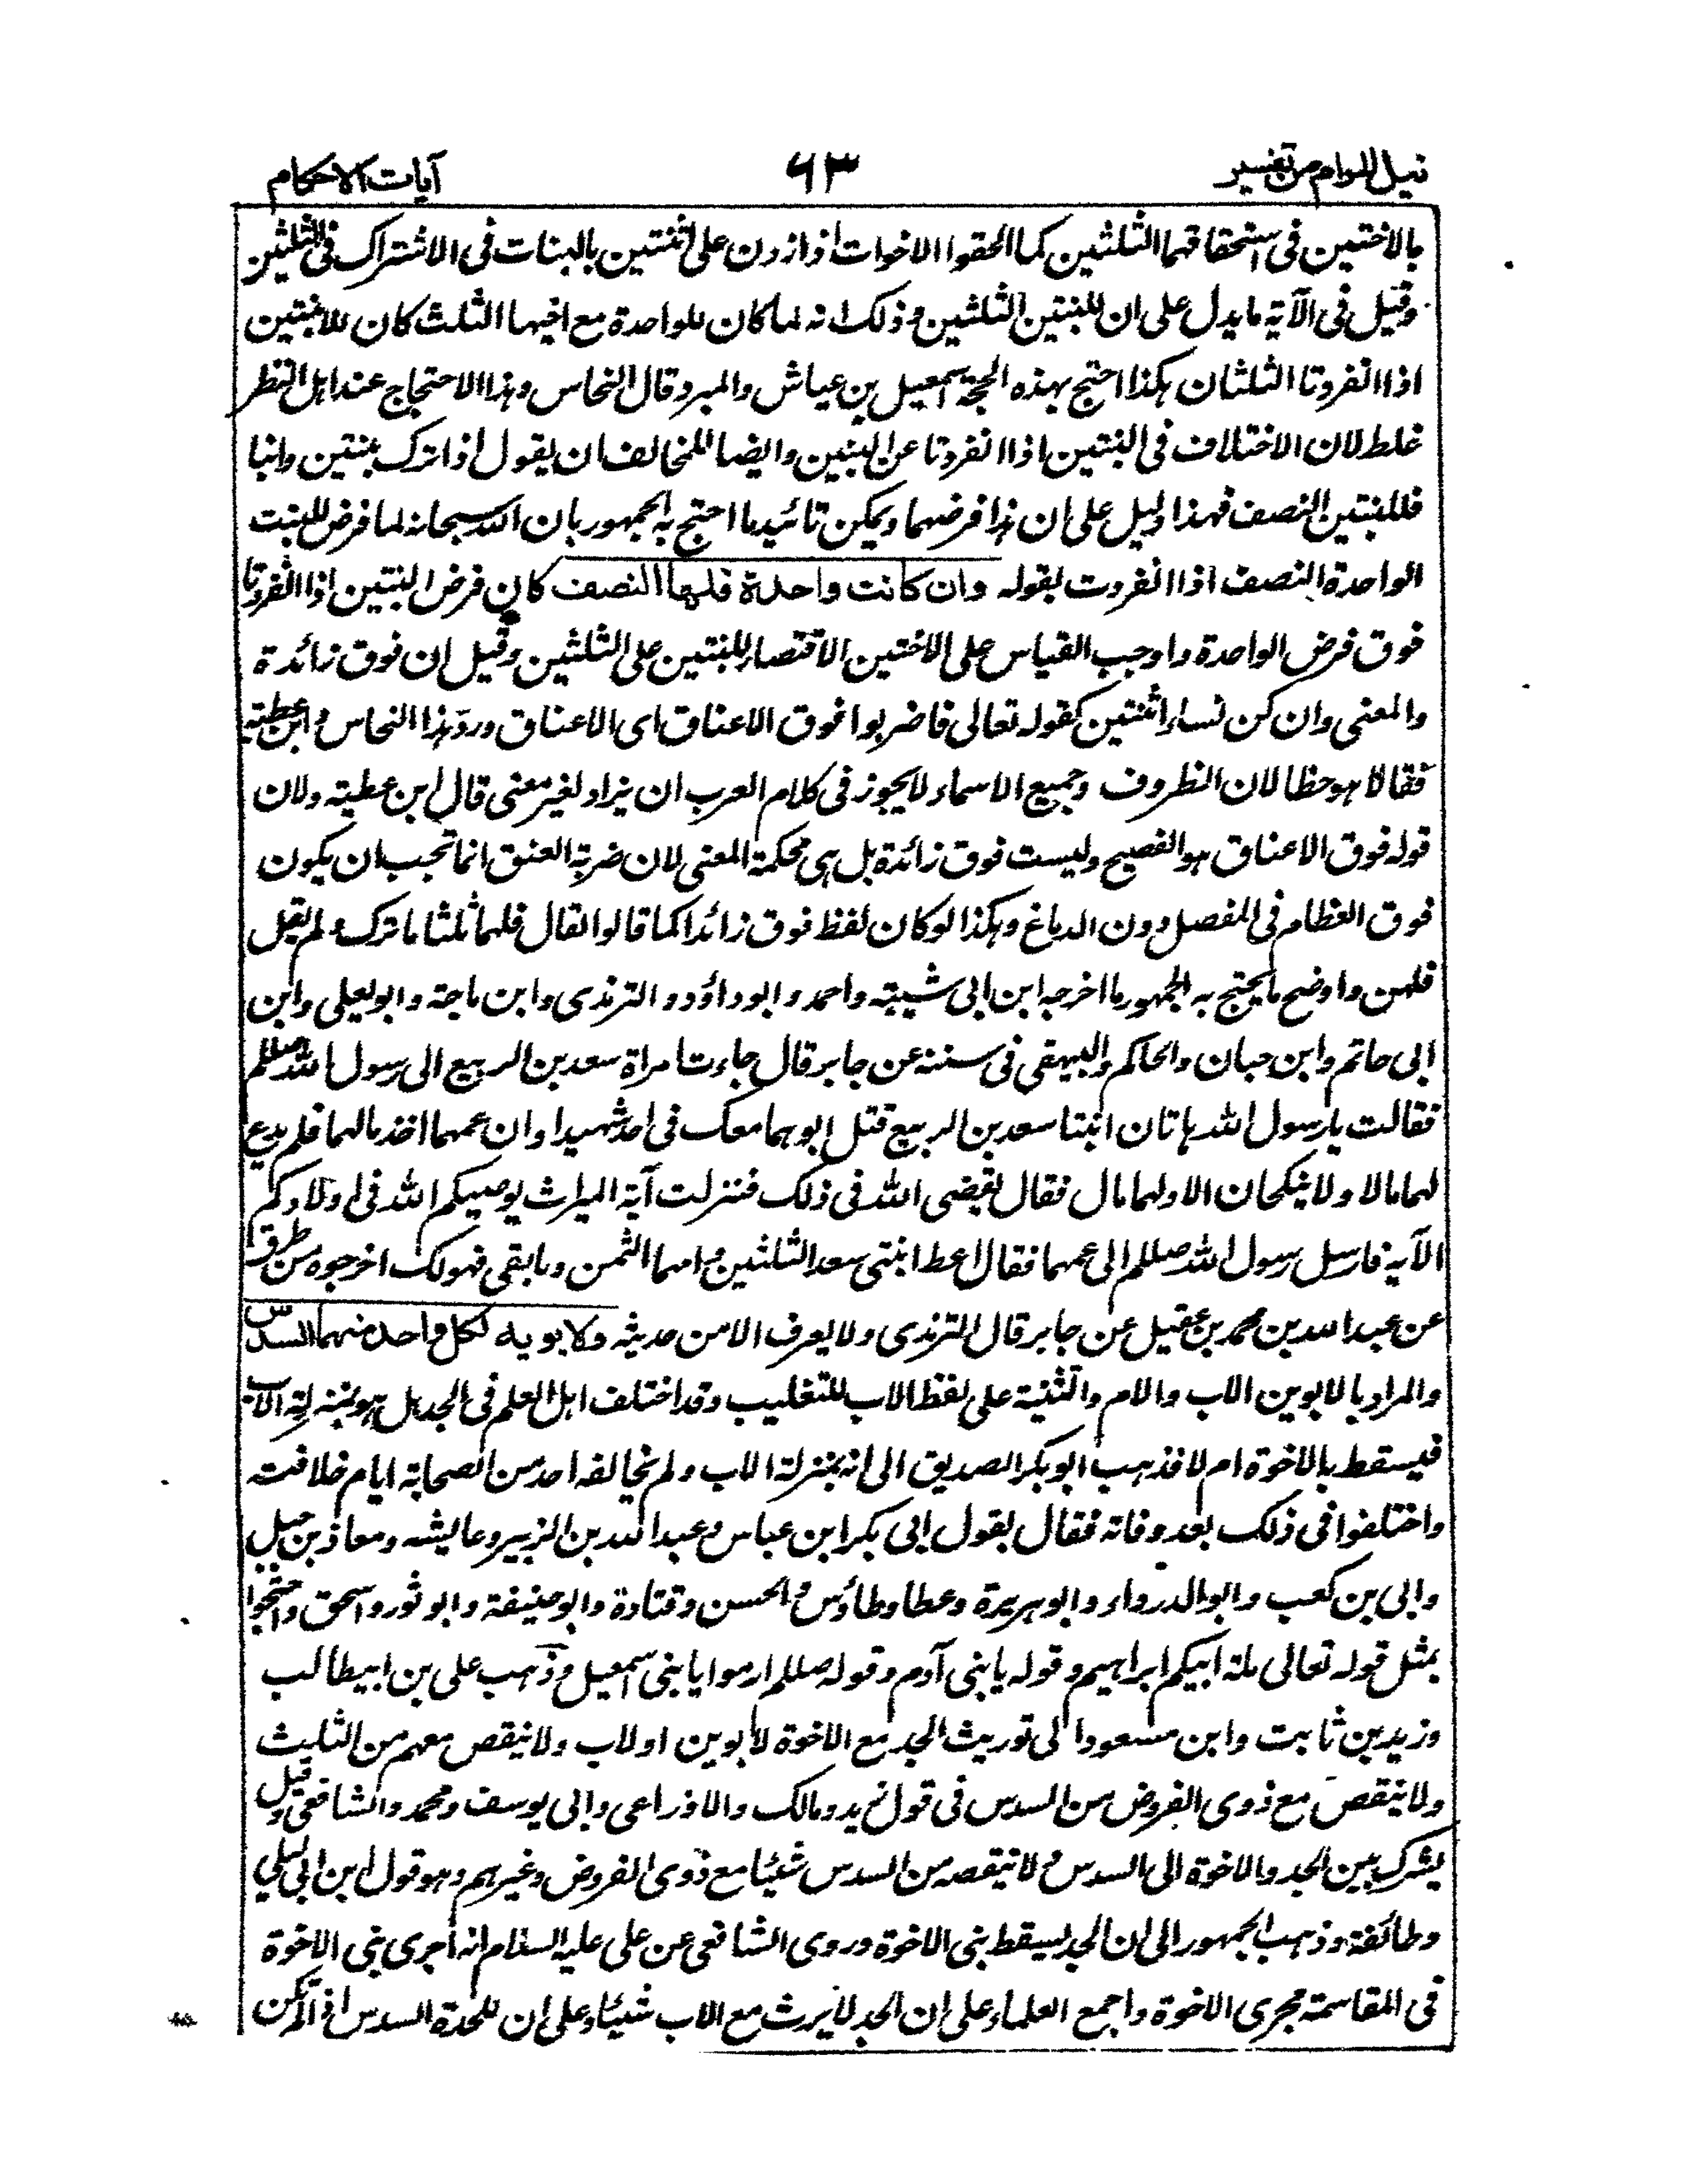 نيل المرام من تفسير ٩٣ آيات الاحكام
بالاختين فى استحقاقهما الثلثين كما الحقوا الاخوات اذا زدن على اثنتين بالبنات فى الاشتراك فى الثلثين
وقيل فى الآية ما يدل على ان للبنتين الثلثين وذلك انه لما كان للواحدة مع اخيها الثلث كان للابنتين
اذا انفردتا الثلثان هكذا احتج بهذه الحجة اسمعيل بن عياش والمبرد قال النحاس وهذا الاحتجاج عند اهل النظر
غلط لان الاختلاف فى البنتين اذا انفردتا عن البنين وايضا للمخالف ان يقول اذا ترك بنتين وابنا
فللبنتين النصف فهذا دليل على ان هذا فرضهما ويمكن تائيد ما احتج به الجمهور بان الله سبحانه لما فرض للبنت
الواحدة النصف اذا انفردت بقوله وان كانت واحدة فلها النصف كان فرض البنتين اذا انفردتا
فوق فرض الواحدة واوجب القياس على الاختين الاقتصار للبنتين على الثلثين وقيل ان فوق زائدة
والمعنى وان كن نساء اثنتين كقوله تعالى فاضربوا فوق الاعناق اى الاعناق ورد هذا النحاس وابن عطية
فقالا هو خطا لان الظروف وجميع الاسماء لا يجوز فى كلام العرب ان يزاد لغير معنى قال ابن عطية ولان
قوله فوق الاعناق هو الفصيح وليست فوق زائدة بل هى محكمة المعنى لان ضربة العنق انما تجب ان يكون
فوق العظام فى المفصل دون الدماغ وهكذا لو كان لفظ فوق زائدا كما قالوا لقال فلهما ثلثا ما ترك ولم يقل
فلهن واوضح ما يحتج به الجمهور ما اخرجه ابن ابى شيبة واحمد وابو داؤد والترمذى وابن ماجة وابو يعلى وابن
ابى حاتم وابن حبان والحاكم والبيهقى فى سننه عن جابر قال جاءت امراة سعد بن الربيع الى رسول الله صللم
فقالت يا رسول الله هاتان ابنتا سعد بن الربيع قتل ابوهما معك فى احد شهيدا وان عمهما اخذ مالهما فلم يدع
لهما مالا ولا ينكحان الا ولهما مال فقال يقضى الله فى ذلك فنزلت آية الميراث يوصيكم الله فى اولادكم
الآية فارسل رسول الله صللم الى عمهما فقال اعط ابنتى سعد الثلثين وامهما الثمن وما بقى فهو لك اخرجوه من طرق
عن عبد الله بن محمد بن عقيل عن جابر قال الترمذى ولا يعرف الا من حديثه ولابويه لكل واحد منهما السدس
والمراد بالابوين الاب والام والتثنية على لفظ الاب للتغليب وقد اختلف اهل العلم فى الجد هل هو بمنزلة الاب
فيسقط به الاخوة ام لا فذهب ابو بكر الصديق الى انه بمنزلة الاب ولم يخالفه احد من الصحابة ايام خلافته
واختلفوا فى ذلك بعد وفاته فقال بقول ابى بكر ابن عباس وعبد الله بن الزبير وعايشه ومعاذ بن جبل
وابى بن كعب وابو الدرداء وابو هريرة وعطا وطاؤس والحسن وقتادة وابو حنيفة وابو ثور واسحق واحتجوا
بمثل قوله تعالى ملة ابيكم ابراهيم وقوله يا بنى آدم وقوله صللم ارموا يا بنى اسمعيل وذهب على بن ابيطالب
وزيد بن ثابت وابن مسعود الى توريث الجد مع الاخوة لابوين او لاب ولا ينقص معهم من الثلث
ولا ينقص مع ذوى الفروض من السدس فى قول زيد ومالك والاوزاعى وابى يوسف ومحمد والشافعى وقيل
يشرك بين الجد والاخوة الى السدس ولا ينقصه من السدس شيئا مع ذوى الفروض وغيرهم وهو قول ابن ابى ليلى
وطائفة وذهب الجمهور الى ان الجد يسقط بنى الاخوة وروى الشافعى عن على عليه السلام انه اجرى بنى الاخوة
فى المقاسمة مجرى الاخوة واجمع العلماء على ان الجد لا يرث مع الاب شيئا وعلى ان للجدة السدس اذا لم تكن